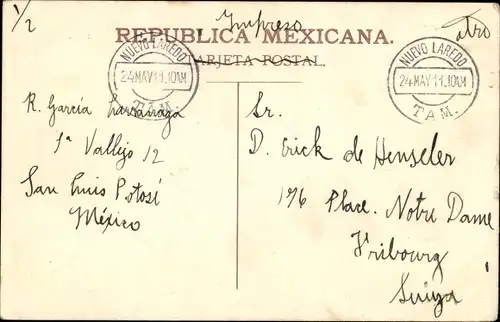 1/2
Impreso
REPUBLICA MEXICANA.
TARJETA POSTAL
NUEVO LAREDO
24 MAY 11.10AM
TAM.
NUEVO LAREDO
24 MAY 11.10AM
TAM.
R. García Larrañaga
1ª Vallejo 12
San Luis Potosí
México
Sr.
D. Erick de Henseler
176 Place. Notre Dame
Fribourg
Suiza